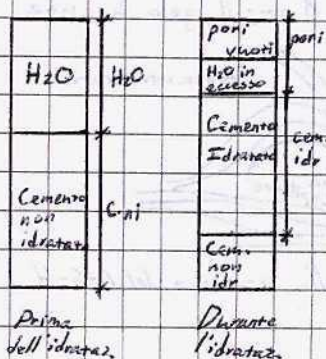 H₂O
H₂O
Cemento
non
idratato
C.ni
Prima
dell'idrataz.
pori
vuoti
H₂O in
eccesso
Cemento
Idratato
Cem.
non
idr
pori
cem.
idr
Durante
l'idrataz.